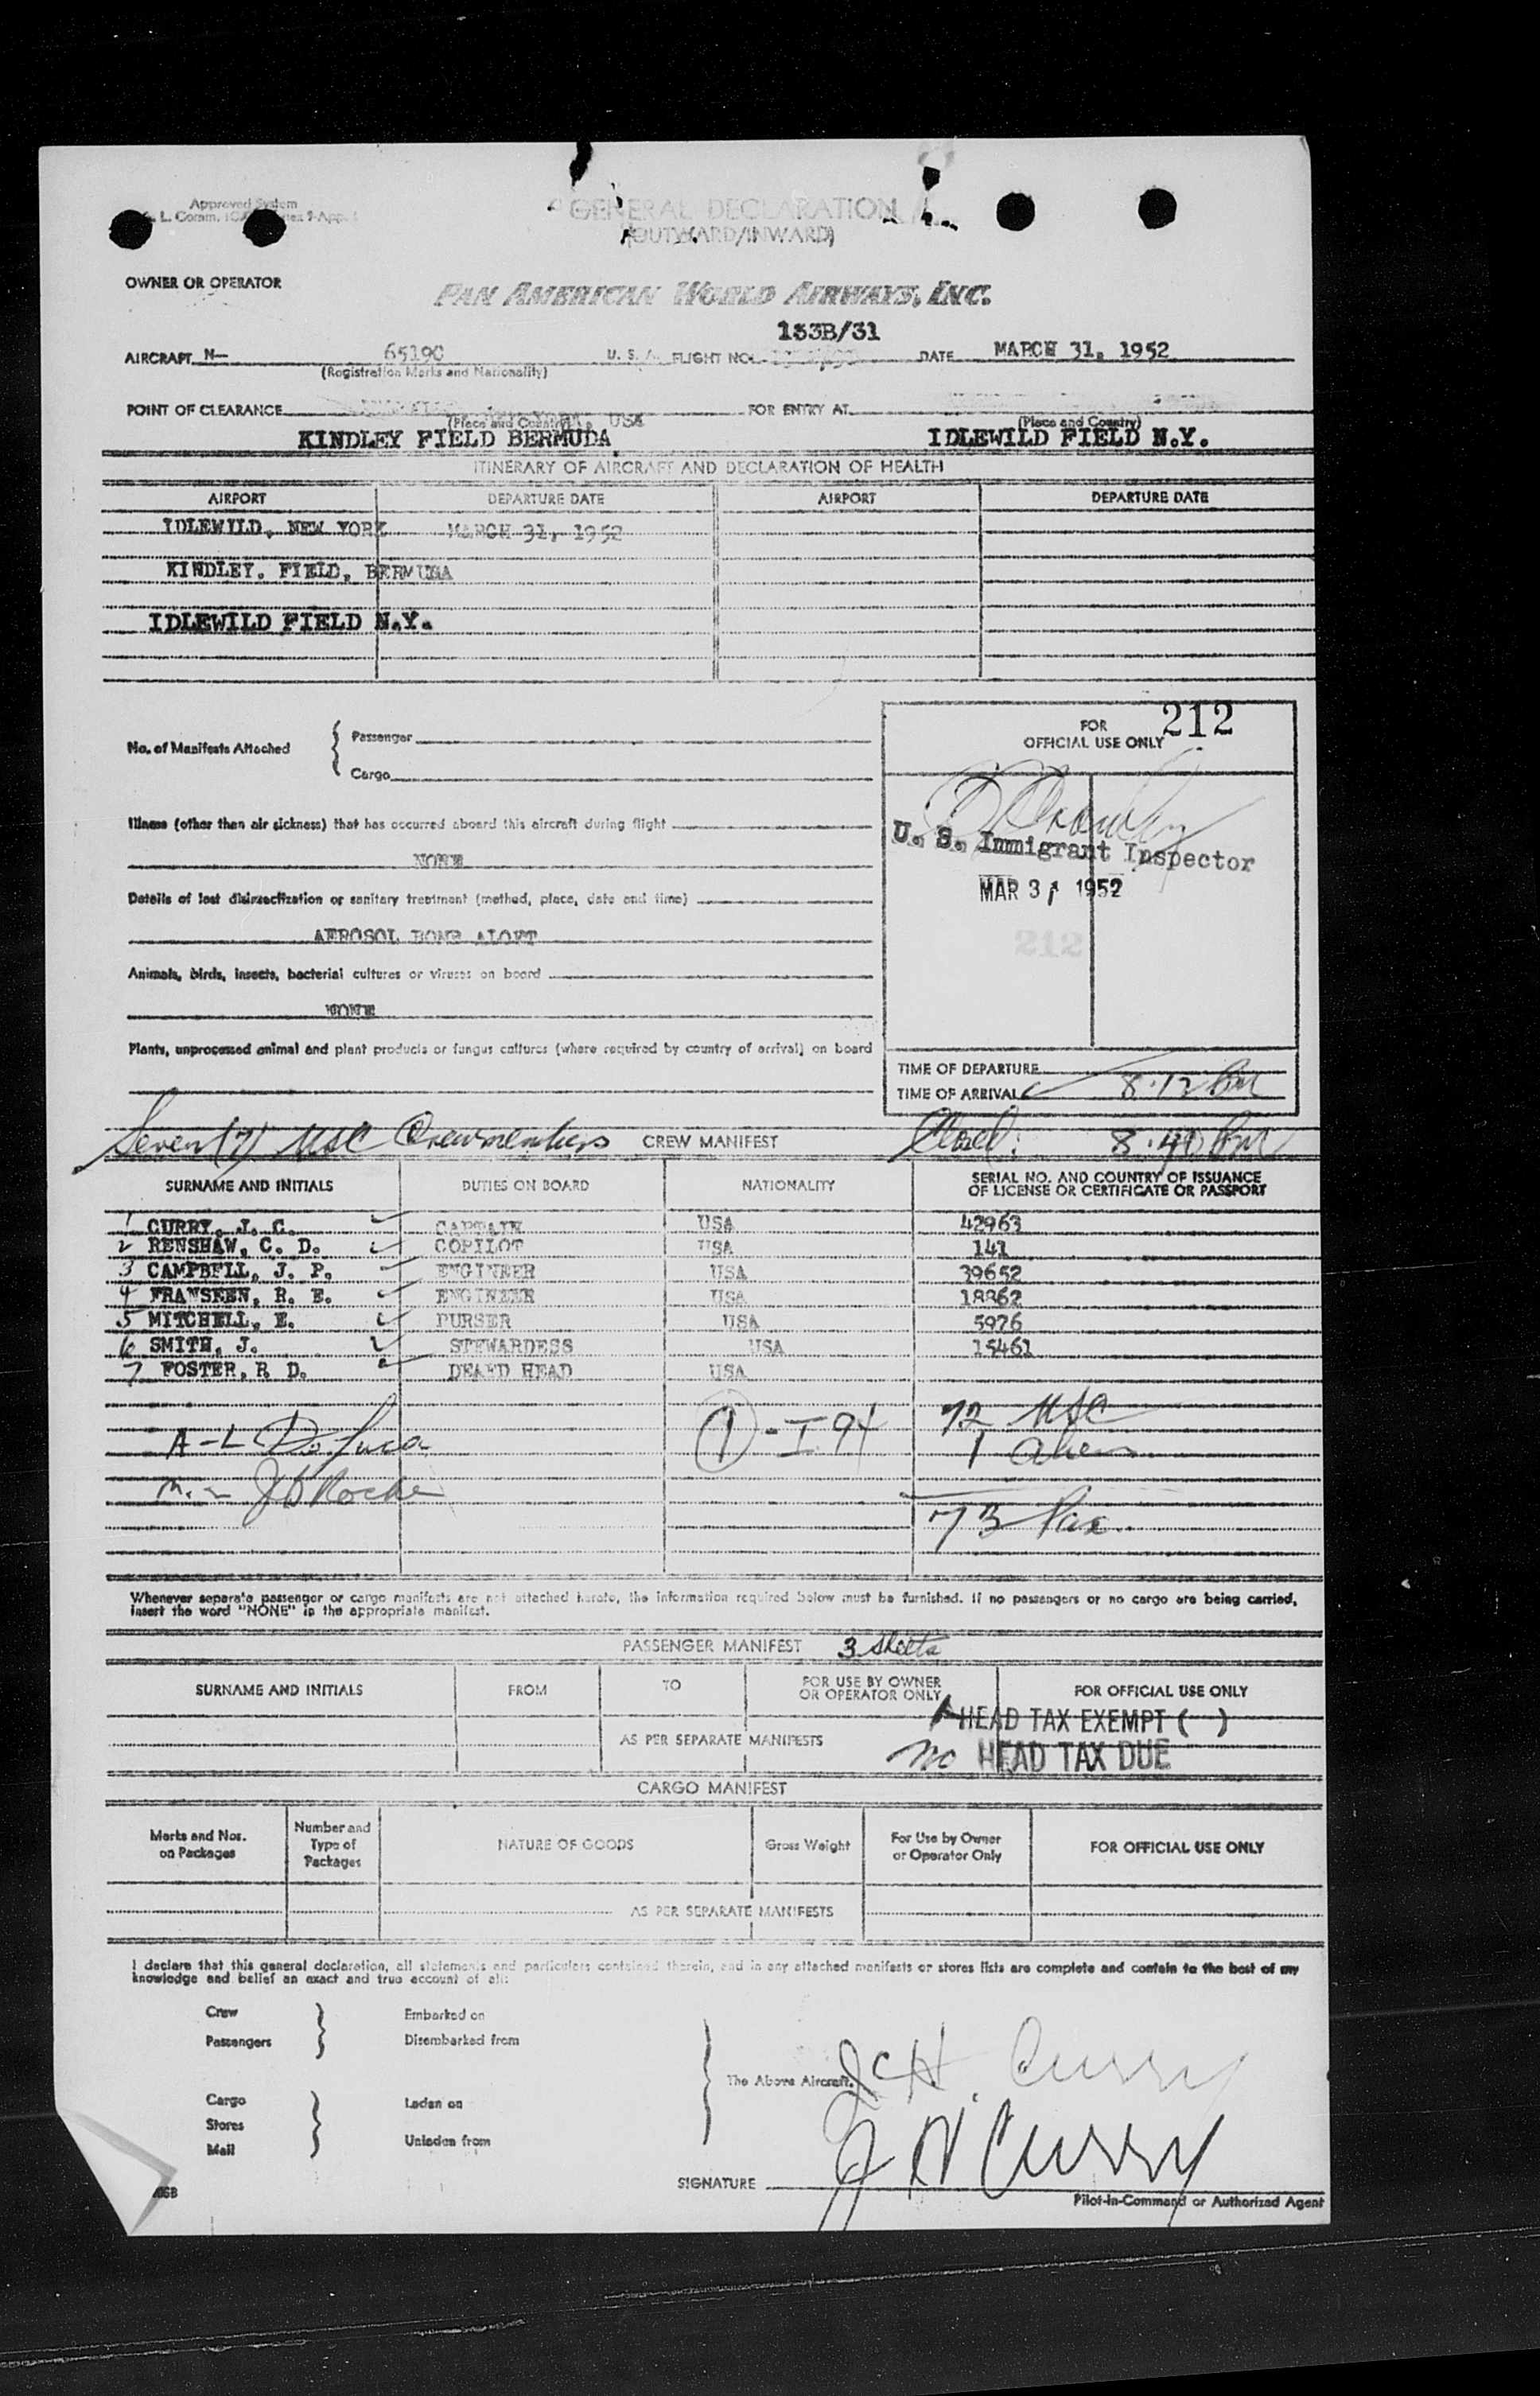 Approved System
GENERAL DECLARATION
(OUTWARD/INWARD)
OWNER OR OPERATOR
PAN AMERICAN WORLD AIRWAYS, INC.
133B/31
AIRCRAFT N— 65190 U. S. A. FLIGHT NO. DATE MARCH 31, 1952
(Registration Marks and Nationality)
POINT OF CLEARANCE USA FOR ENTRY AT
(Place and Country) (Place and Country)
KINDLEY FIELD BERMUDA IDLEWILD FIELD N.Y.
ITINERARY OF AIRCRAFT AND DECLARATION OF HEALTH
AIRPORT DEPARTURE DATE AIRPORT DEPARTURE DATE
IDLEWILD, NEW YORK MARCH 31, 1952
KINDLEY. FIELD, BERMUDA
IDLEWILD FIELD N.Y.
No. of Manifests Attached
Passenger
Cargo
212
FOR
OFFICIAL USE ONLY
Illness (other than air sickness) that has occurred aboard this aircraft during flight
NONE
U. S. Immigrant Inspector
MAR 31 1952
212
Details of last disinsectization or sanitary treatment (method, place, date and time)
AEROSOL BOMB ALOFT
Animals, birds, insects, bacterial cultures or viruses on board
NONE
Plants, unprocessed animal and plant products or fungus cultures (where required by country of arrival) on board
TIME OF DEPARTURE
TIME OF ARRIVAL 8:12 PM
Seven (7) USC Crewmembers CREW MANIFEST 8:40 PM
SURNAME AND INITIALS DUTIES ON BOARD NATIONALITY SERIAL NO. AND COUNTRY OF ISSUANCE
OF LICENSE OR CERTIFICATE OR PASSPORT
1 CURRY, J. C. CAPTAIN USA 42963
2 RENSHAW, C. D. COPILOT USA 141
3 CAMPBELL, J. P. ENGINEER USA 39652
4 FRANSEEN, R. E. ENGINEER USA 18862
5 MITCHELL, E. PURSER USA 5976
6 SMITH, J. STEWARDESS USA 15461
7 FOSTER, R D. DEAED HEAD USA
A-L De Luca 1 - I 94 72 USC
1 Alien
J B Roche
73 Pax
Whenever separate passenger or cargo manifests are not attached hereto, the information required below must be furnished. If no passengers or no cargo are being carried,
insert the word "NONE" in the appropriate manifest.
PASSENGER MANIFEST 3 sheets
SURNAME AND INITIALS FROM TO FOR USE BY OWNER
OR OPERATOR ONLY FOR OFFICIAL USE ONLY
HEAD TAX EXEMPT ( )
AS PER SEPARATE MANIFESTS no HEAD TAX DUE
CARGO MANIFEST
Marks and Nos.
on Packages
Number and
Type of
Packages
NATURE OF GOODS
Gross Weight
For Use by Owner
or Operator Only
FOR OFFICIAL USE ONLY
AS PER SEPARATE MANIFESTS
I declare that this general declaration, all statements and particulars contained therein, and in any attached manifests or stores lists are complete and contain to the best of my
knowledge and belief an exact and true account of all:
Crew Embarked on
Passengers Disembarked from
The Above Aircraft.
J C H. Curry
Cargo Laden on
Stores
Mail Unladen from
SIGNATURE J H Curry
Pilot-in-Command or Authorized Agent